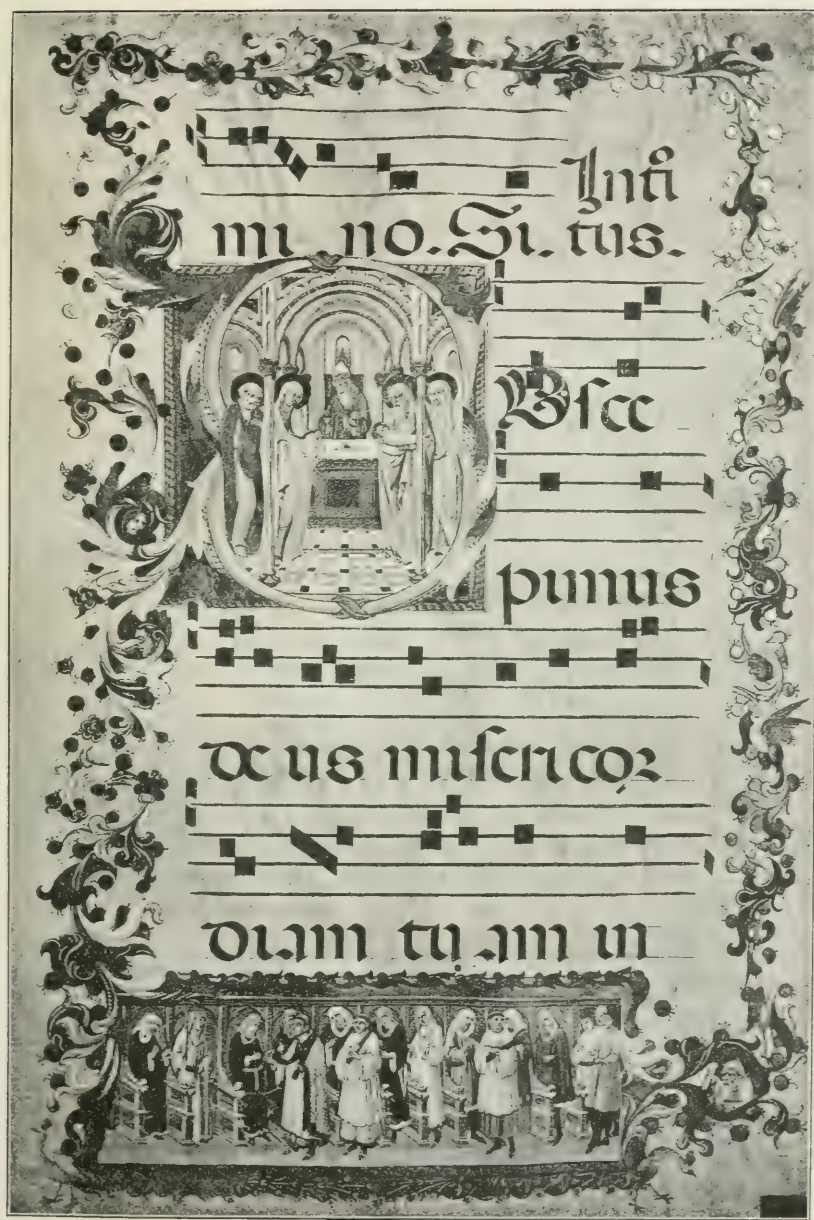 Intͦi
mi no. Si. tus.
SUſce
pimus
de us miſericoꝛ
diam tu am in